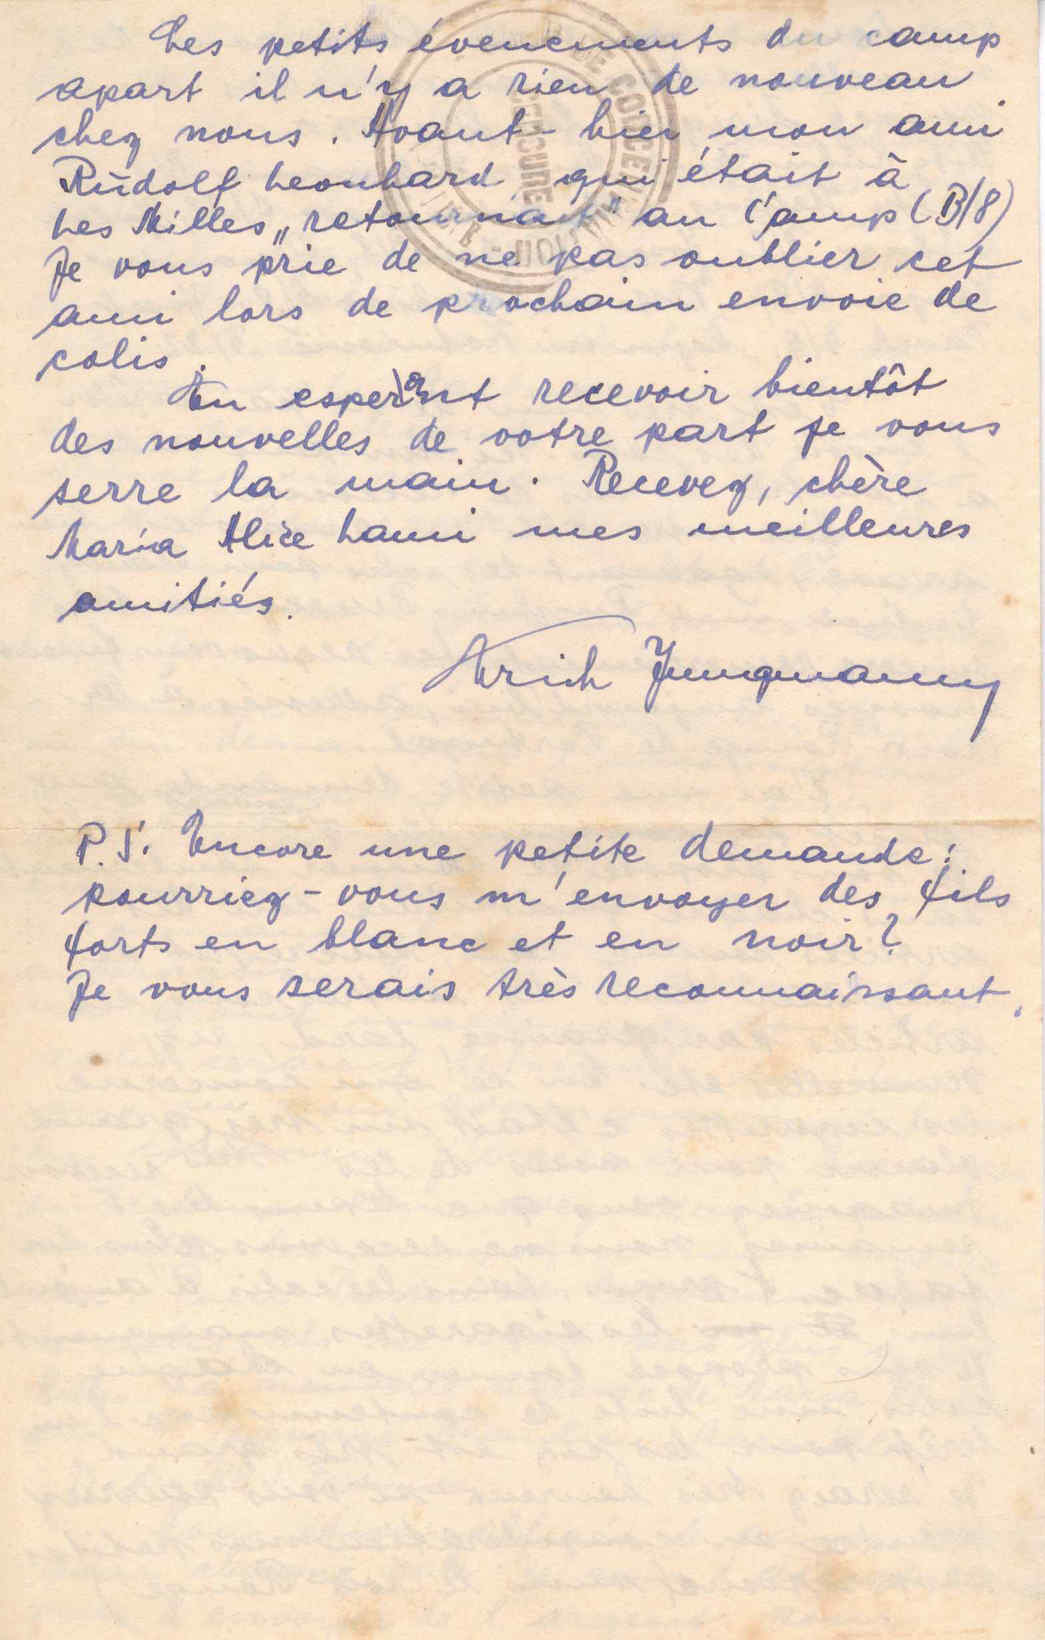 Les petits évenements du camp
apart il n'y a rien de nouveau
chez nous. Avant-hier mon ami
Rudolf Leonhard qui était à
Les Milles „retournait" au Camp (B/8)
Je vous prie de ne pas oublier cet
ami lors de prochain envoie de
colis.
En esperant recevoir bientôt
des nouvelles de votre part je vous
serre la main. Recevez, chère
Maria Alice Lami mes meilleures
amitiés.
Erich Jungmann
P.S. Encore une petite demande:
pourriez-vous m'envoyer des fils
forts en blanc et en noir?
Je vous serais très reconnaissant.
CENSURE